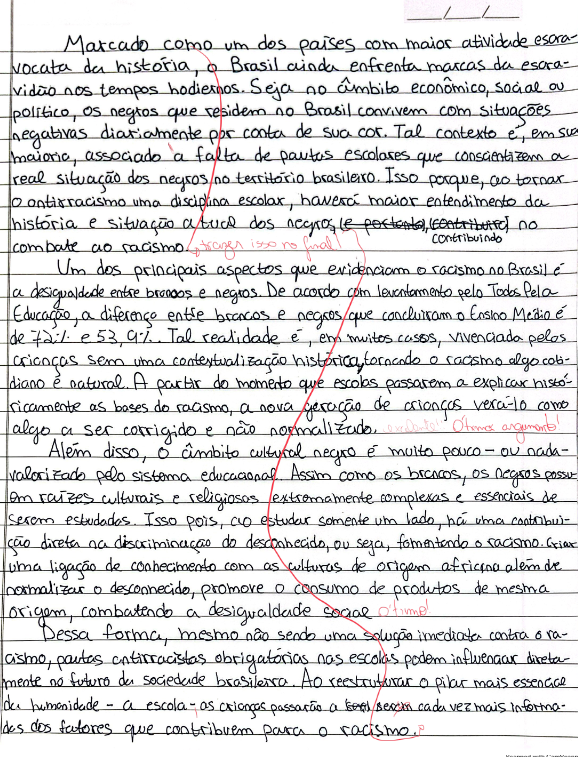 Marcado como um dos países com maior atividade escra-
vocata da história, o Brasil ainda enfrenta marcas da escra-
vidão nos tempos hodiernos. Seja no âmbito econômico, social ou
político, os negros que residem no Brasil convivem com situações
negativas diariamente por conta de sua cor. Tal contexto é, em sua
maioria, associado a falta de pautas escolares que conscientizem a
real situação dos negros no território brasileiro. Isso porque, ao tornar
o antirracismo uma disciplina escolar, haverá maior entendimento da
história e situação atual dos negros, (e portanto), (contribuire) no
contribuindo
combate ao racismo. trazer isso no final!
Um dos principais aspectos que evidenciam o racismo no Brasil é
a desigualdade entre brancos e negros. De acordo com levantamento pelo Todos Pela
Educação, a diferença entre brancos e negros que concluíram o Ensino Médio é
de 72% e 53,9%. Tal realidade é, em muitos casos, vivenciada pelas
crianças sem uma contextualização histórica, tornando o racismo algo coti-
diano e natural. A partir do momento que escolas passarem a explicar histó-
ricamente as bases do racismo, a nova geração de crianças verá-lo como
algo a ser corrigido e não normalizado. Ótimos argumento!
Além disso, o âmbito cultural negro é muito pouco - ou nada-
valorizado pelo sistema educacional. Assim como os brancos, os negros possu-
em raízes culturais e religiosas extremamente complexas e essenciais de
serem estudadas. Isso pois, ao estudar somente um lado, há uma contribui-
ção direta na discriminação do desconhecido, ou seja, fomentando o racismo. Criar
uma ligação de conhecimento com as culturas de origem africana além de
normalizar o desconhecido, promove o consumo de produtos de mesma
origem, combatendo a desigualdade social Ótimo!
Dessa forma, mesmo não sendo uma solução imediata contra o ra-
cismo, pautas antirracistas obrigatórias nas escolas podem influenciar direta-
mente no futuro da sociedade brasileira. Ao reestruturar o pilar mais essencial
da humanidade - a escola - as crianças passarão a serem cada vez mais informa-
das dos fatores que contribuem para o racismo.